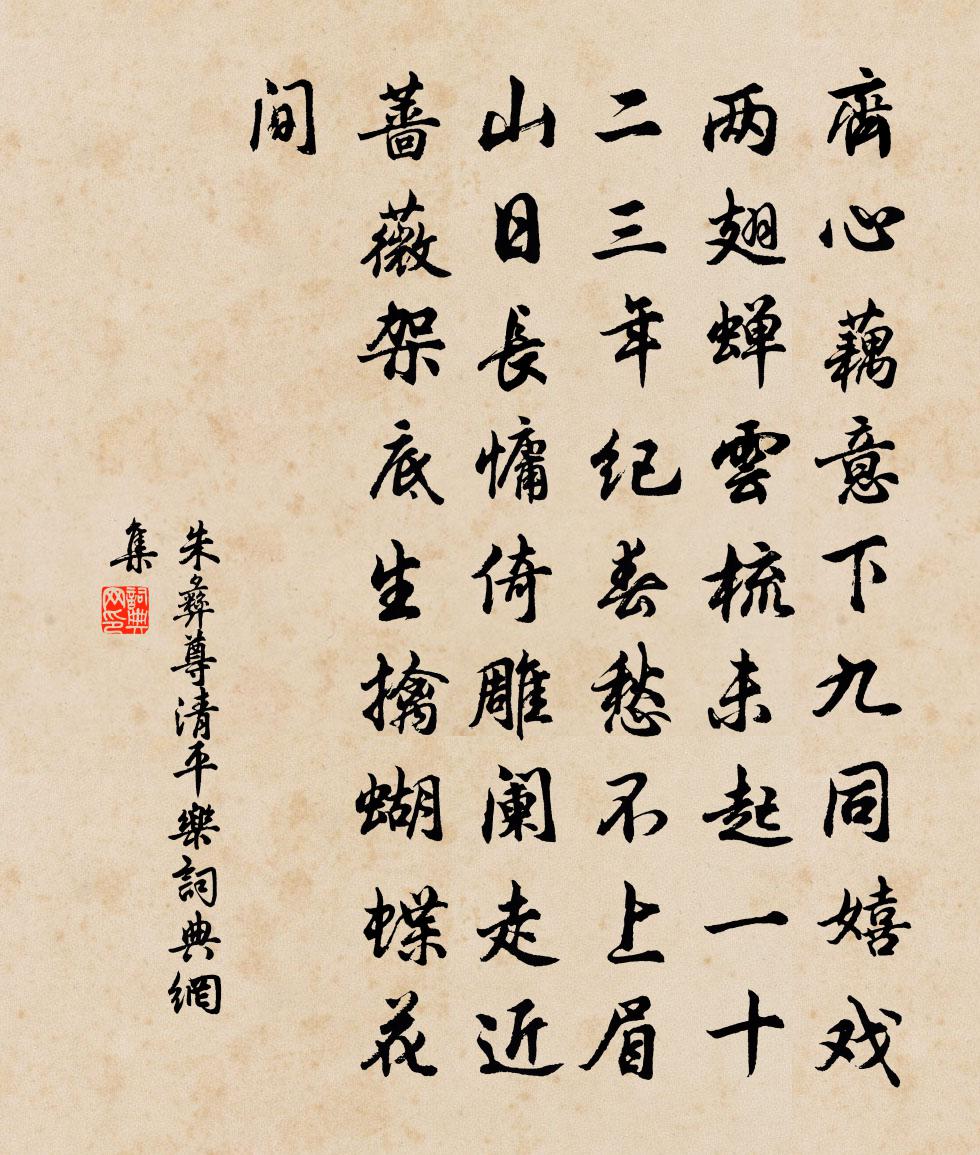 齊心藕意下九同嬉戏
两翅蝉雲梳未起一十
二三年纪春愁不上眉
山日長慵倚雕阑走近
薔薇架底生擒蝴蝶花
间
朱彝尊清平樂詞典網
集
詞典网印